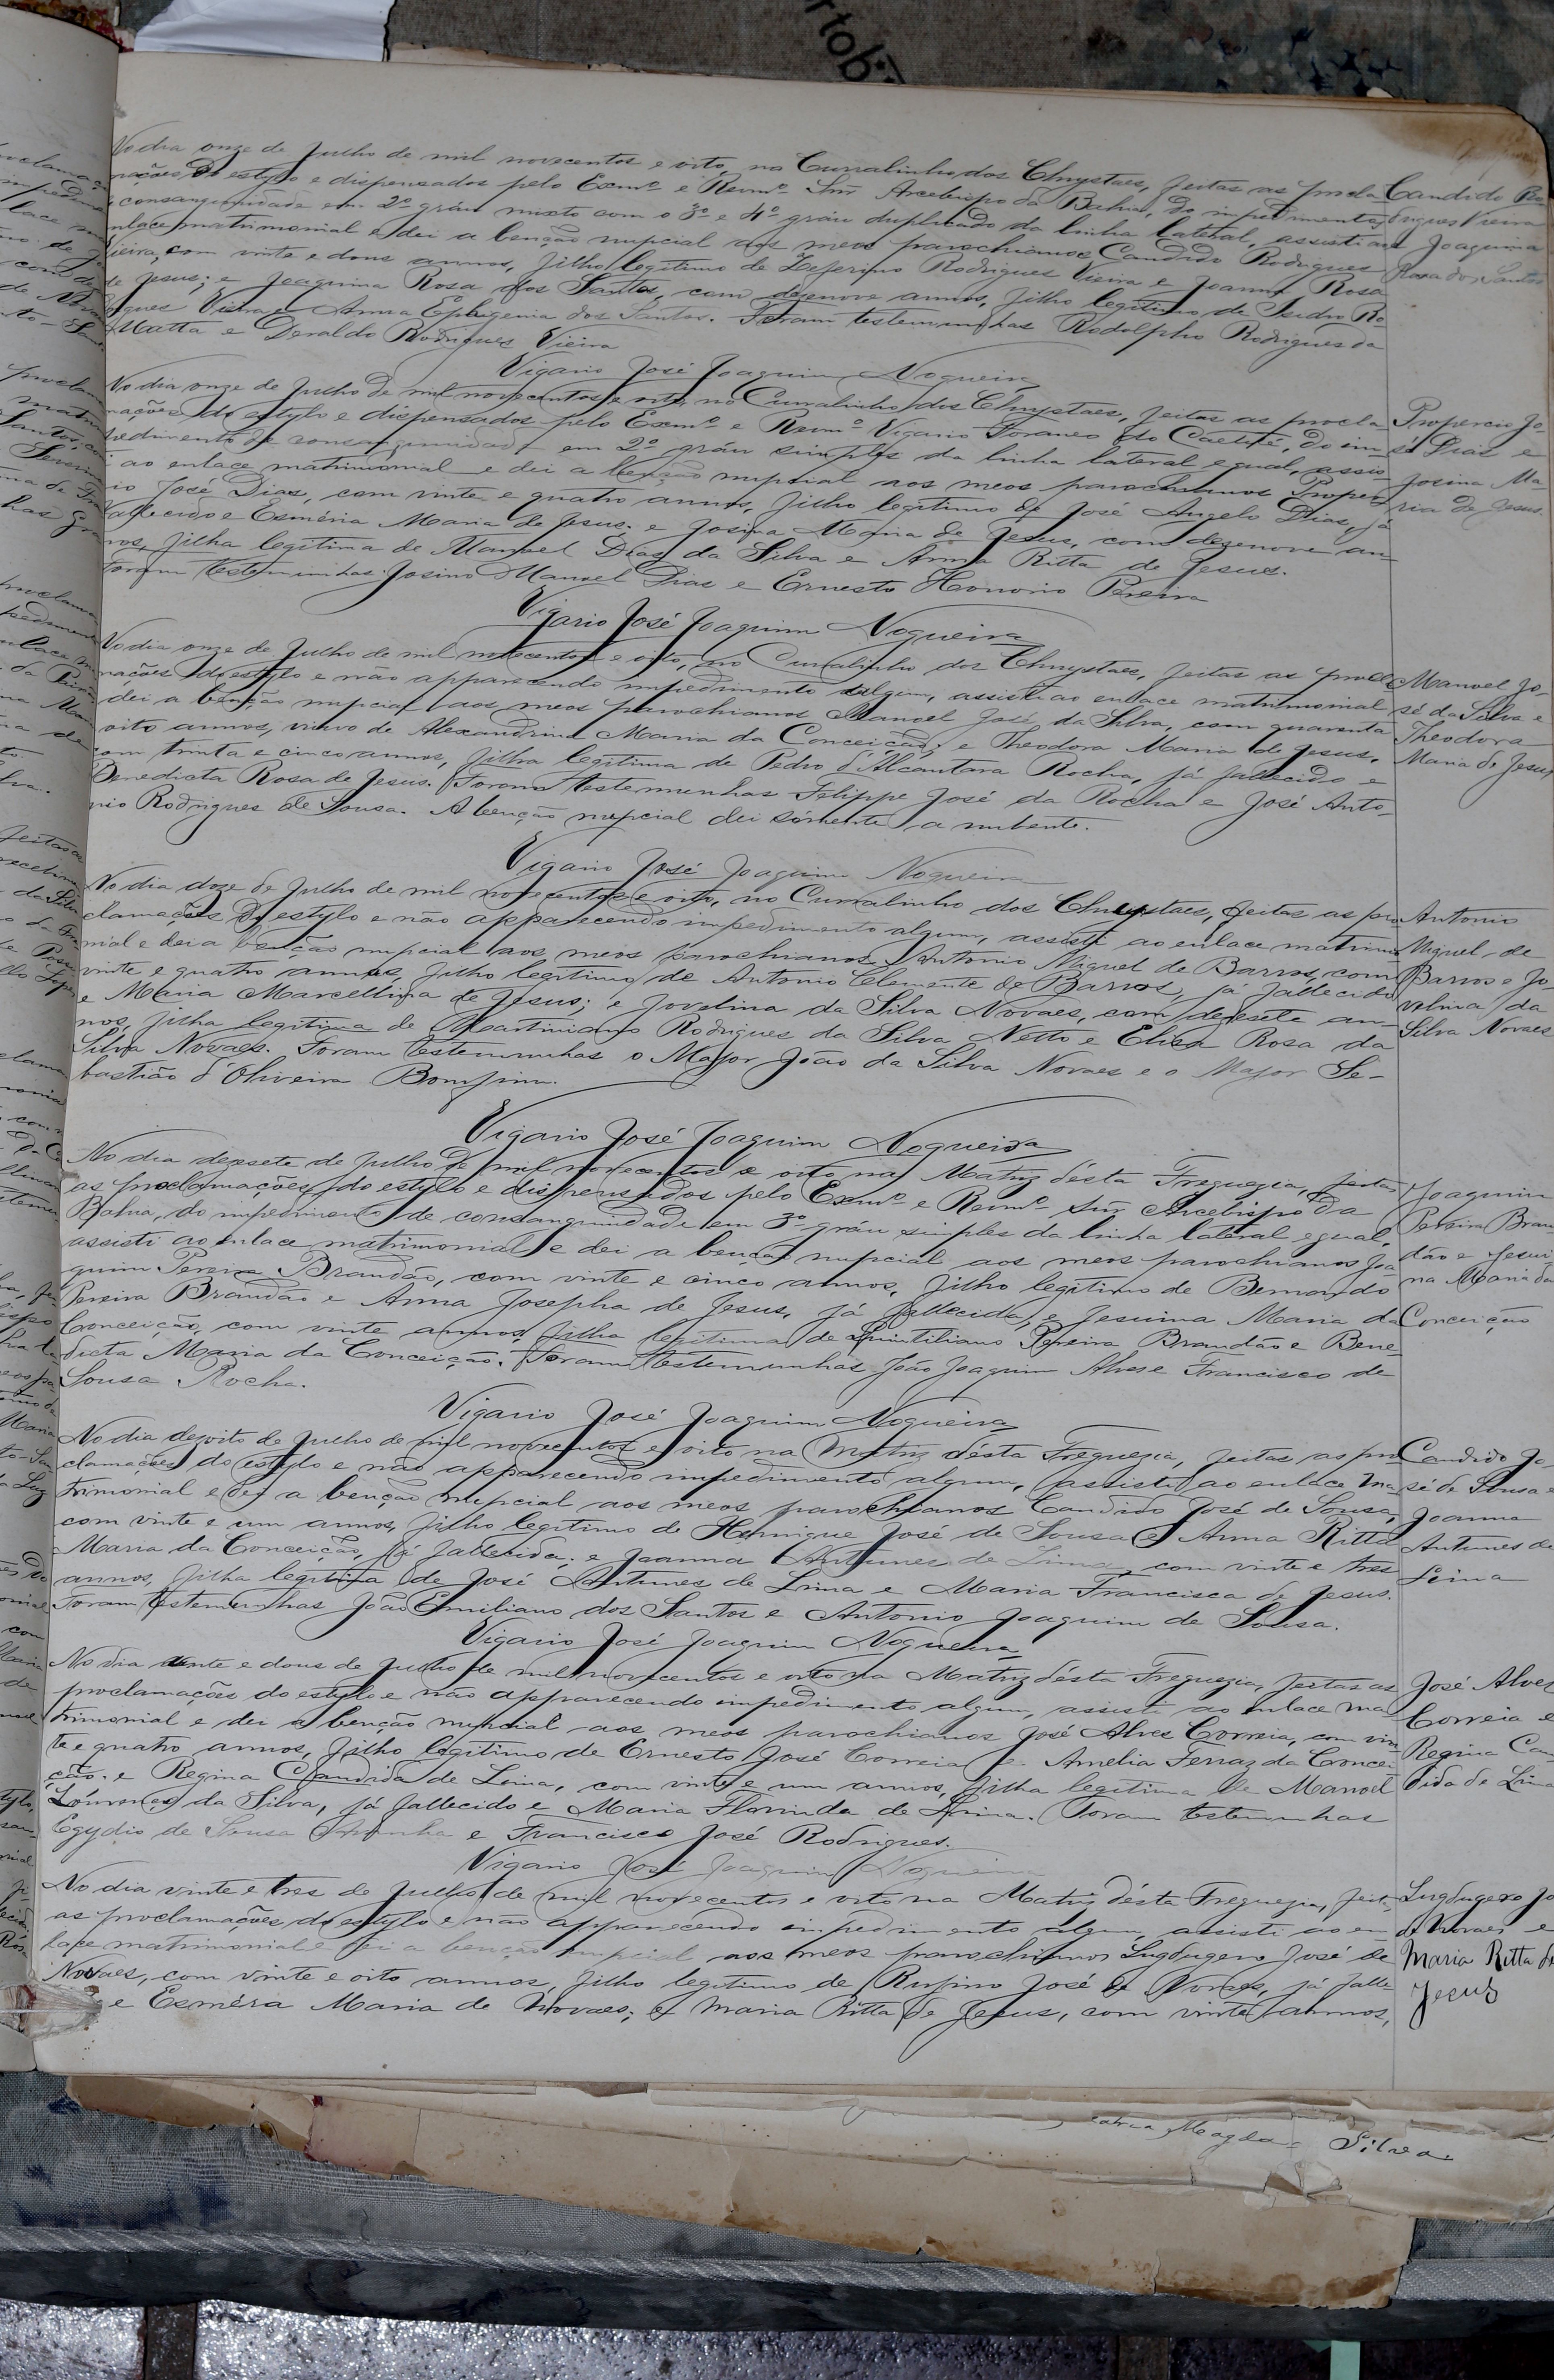 No dia onze de Julho de mil novecentos e oito, no Curralinho dos Chrystaes, feitas as procla-
mações do estylo e dispensados pelo Exmº e Revmº Snr Arcebispo da Bahia, do impedimento
consanguinidade em 2º gráu mixto com o 3º e 4º gráu duplicado da linha lateral, assisti ao
enlace matrimonial e dei a benção nupcial aos meos parochianos Candido Rodrigues
Vieira, com vinte e dous annos, filho legitimo de Zeferino Rodrigues Vieira e Joanna Rosa
de Jesus; e Joaquina Rosa dos Santos, com dezenove annos, filho legitimo de Izidro Ro-
gues Vieira e Anna Ephigenia dos Santos. Foram testemunhas Rodolpho Rodrigues da
Matta e Deraldo Rodrigues Vieira
Vigario José Joaquim Nogueira
Candido Ro-
drigues Vieira
e Joaquina
Rosa dos Santos
No dia onze de Julho de mil novecentos e oito, no Curralinho dos Chrystaes, feitas as procla-
mações do estylo e dispensados pelo Exmº e Revmº Vigario Foraneo do Caeteté, do im-
pedimento de consanguinidade em 2º gráu simples da linha lateral egual, assis-
ti ao enlace matrimonial e dei a benção nupcial aos meos parochianos Proper-
cio José Dias, com vinte e quatro annos, filho legitimo de José Angelo Dias, já
fallecido e Esméria Maria de Jesus; e Josina Maria de Jesus, com dezenove an-
nos, filha legitima de Manoel Dias da Silva e Anna Ritta de Jesus.
Foram testemunhas: Josino Manoel Dias e Ernesto Honorio Pereira
Vigario José Joaquim Nogueira
Propercio Jo-
sé Dias e
Josina Ma-
ria de Jesus.
No dia onze de Julho de mil novecentos e oito, no Curralinho dos Chrystaes, feitas as procla-
mações do estylo e não apparecendo impedimento algum, assisti ao enlace matrimonial
e dei a benção nupcial aos meos parochianos Manoel José da Silva, com quarenta
oito annos, viuvo de Alexandrina Maria da Conceição; e Theodora Maria de Jesus,
com trinta e cinco annos, filha legitima de Pedro d'Alcantara Rocha, já fallecido e
Benedicta Rosa de Jesus. Foram testemunhas Felippe José da Rocha e José Anto-
nio Rodrigues de Sousa. A benção nupcial dei sómente a nubente.
Vigario José Joaquim Nogueira
Manoel Jo-
sé da Silva e
Theodora
Maria de Jesus
No dia doze de Julho de mil novecentos e oito, no Curralinho dos Chrystaes, feitas as pro-
clamações do estylo e não apparecendo impedimento algum, assisti ao enlace matrimo-
nial e dei a benção nupcial aos meos parochianos Antonio Miguel de Barros, com
vinte e quatro annos, filho legitimo de Antonio Clemente de Barros, já fallecido
e Maria Marcellina de Jesus; e Jovelina da Silva Novaes, com dezesete an-
nos, filha legitima de Martiniano Rodrigues da Silva Netto e Elisa Rosa da
Silva Novaes. Foram testemunhas o Major João da Silva Novaes e o Major Se-
bastião d'Oliveira Bomfim.
Vigario José Joaquim Nogueira
Antonio
Miguel de
Barros e Jo-
velina da
Silva Novaes
No dia dezesete de Julho de mil novecentos e oito na Matriz d'ésta Freguezia, feitas
as proclamações do estylo e dispensados pelo Exmº e Revmº Snr Arcebispo da
Bahia, do impedimento de consanguinidade em 3º gráu simples da linha lateral egual,
assisti ao enlace matrimonial e dei a benção nupcial aos meos parochianos Joa-
quim Pereira Brandão, com vinte e cinco annos, filho legitimo de Bernardo
Pereira Brandão e Anna Josepha de Jesus, já fallecida; e Jesuina Maria da
Conceição, com vinte annos, filha legitima de Quintiliano Pereira Brandão e Bene-
dicta Maria da Conceição. Foram testemunhas João Joaquim Alves e Francisco de
Sousa Rocha.
Vigario José Joaquim Nogueira
Joaquim
Pereira Bran-
dão e Jesui-
na Maria da
Conceição
No dia dezoito de Julho de mil novecentos e oito na Matriz d'ésta Freguezia, feitas as pro-
clamações do estylo e não apparecendo impedimento algum, assisti ao enlace ma-
trimonial e dei a benção nupcial aos meos parochianos Candido José de Sousa,
com vinte e um annos, filho legitimo de Henrique José de Sousa e Anna Ritta
Maria da Conceição, já fallecida; e Joanna Antunes de Lima, com vinte e tres
annos, filha legitima de José Antunes de Lima e Maria Francisca de Jesus.
Foram testemunhas João Emiliano dos Santos e Antonio Joaquim de Sousa.
Vigario José Joaquim Nogueira
Candido Jo-
sé de Sousa e
Joanna
Antunes de
Lima
No dia vinte e dous de Julho de mil novecentos e oito na Matriz d'ésta Freguezia, feitas as
proclamações do estylo e não apparecendo impedimento algum, assisti ao enlace ma-
trimonial e dei a benção nupcial aos meos parochianos José Alves Correia, com vin-
te e quatro annos, filho legitimo de Ernesto José Correia e Amelia Ferraz da Concei-
ção; e Regina Candida de Lima, com vinte e um annos, filha legitima de Manoel
Lourenço da Silva, já fallecido e Maria Florinda de Lima. Foram testemunhas
Egydio de Sousa Aranha e Francisco José Rodrigues.
Vigario José Joaquim Nogueira
José Alves
Correia e
Regina Can-
dida de Lima
No dia vinte e tres de Julho de mil novecentos e oito na Matriz d'ésta Freguezia, feitas
as proclamações do estylo e não apparecendo impedimento algum, assisti ao en-
lace matrimonial e dei a benção nupcial aos meos parochianos Lugdugero José de
Novaes, com vinte e oito annos, filho legitimo de Rufino José de Novaes, já falle-
e Esméra Maria de Novaes; e Maria Ritta de Jesus, com vinte annos,
Lugdugero Jo
de Novaes e
Maria Ritta de
Jesus
Silva